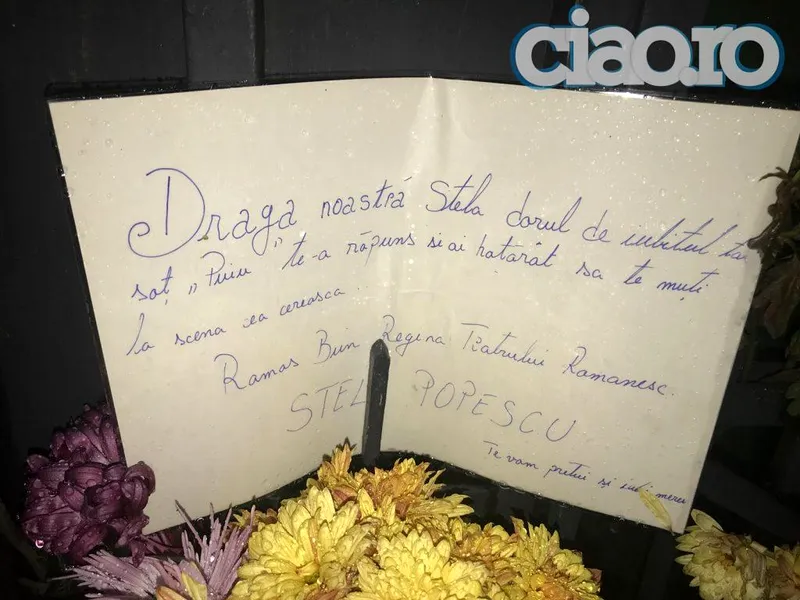 ciao.ro
Draga noastră Stela dorul de iubitul tau
soț „Puiu" te-a răpuns si ai hatarât sa te muți
la scena cea cereasca.
Ramas Bun Regina Teatrului Romanesc.
STEL POPESCU
Te vom pretui și iubi mereu